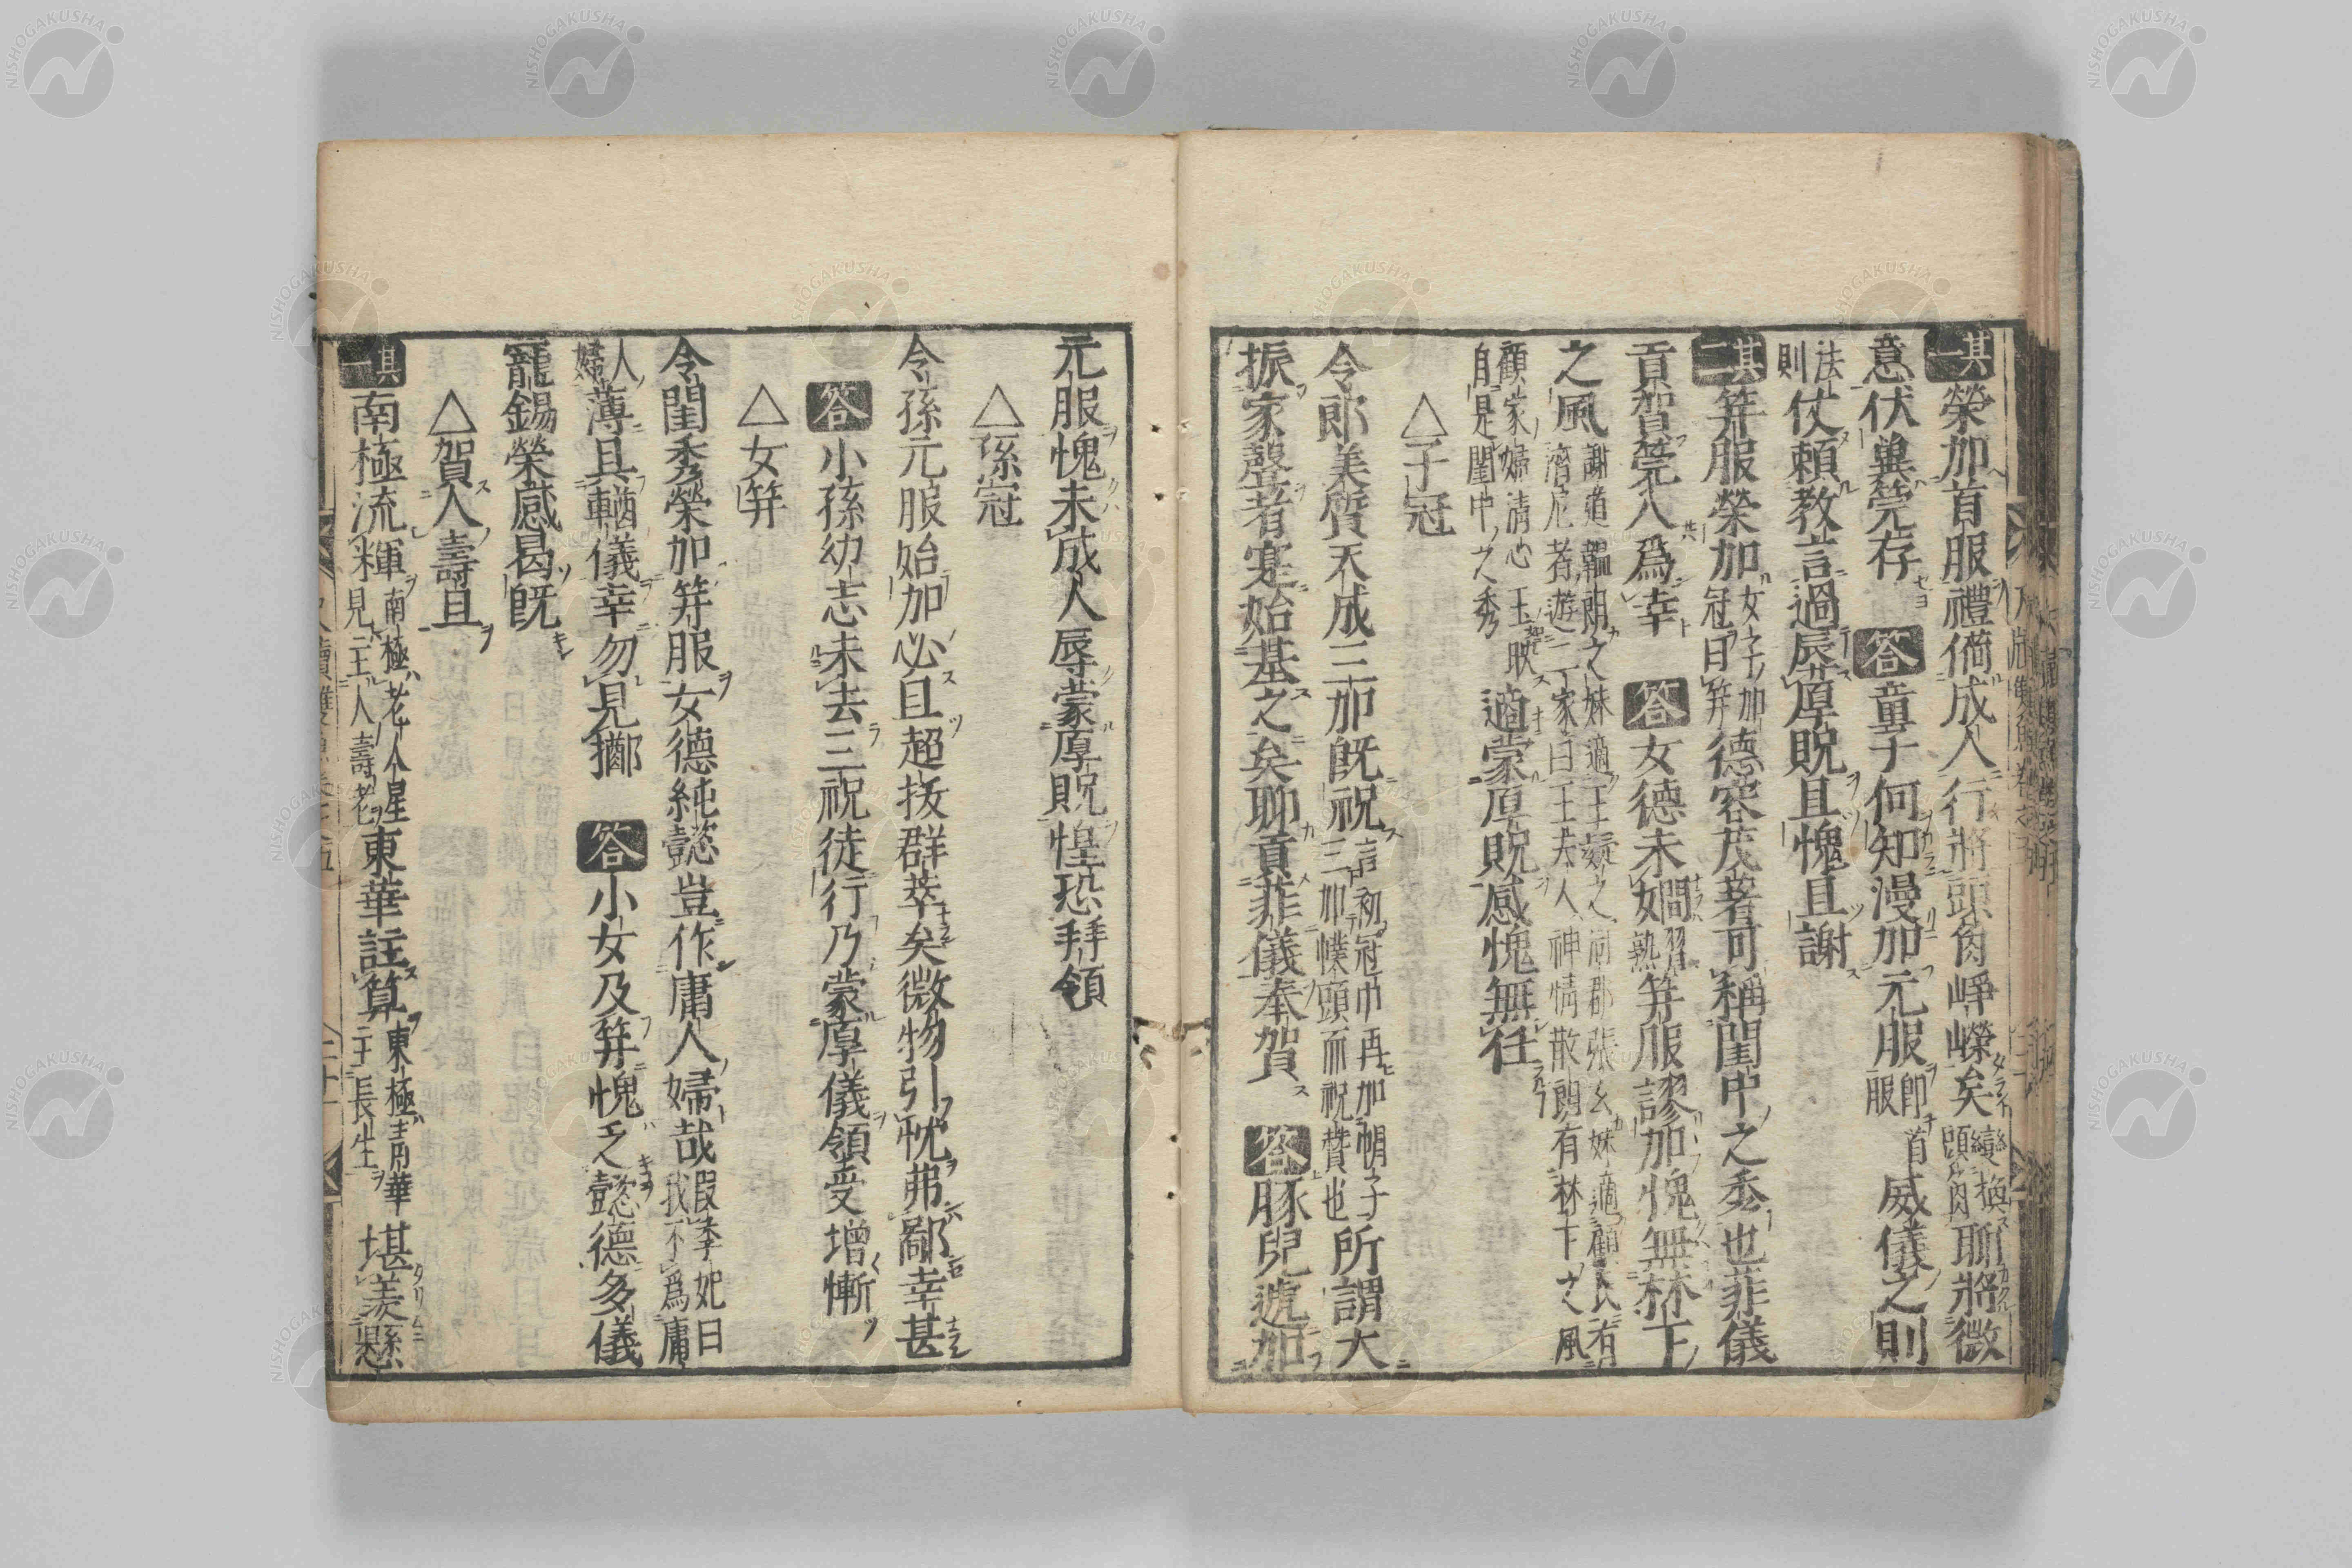 其一 榮加首服禮備成人行將頭角崢嶸矣變換頭角聊將微
意伏冀莞存 答 童子何知漫加元服即首服威儀之則
法則仗頼教言過辱厚貺且愧且謝
其二 笄服榮加女子加冠曰笄德容茂著可稱閨中之秀也菲儀
貢賀莞入爲幸 答 女德未嫺習熟笄服謬加愧無林下
之風謝道韞朗之妹適王凝之同郡張玄妹適顧氏有濟尼者遊二家曰王夫人神情散朗有林下之風
顧家婦清心玉映自是閨中之秀適蒙厚貺感愧無任
△子冠
令郎美質天成三加既祝三加言初冠巾再加帽子中加幞頭而祝贊也所謂大
振家聲者寔始基之矣聊貢菲儀奉賀 答 豚兒遞加
元服愧未成人辱蒙厚貺惶恐拜領
△孫冠
令孫元服始加必且超抜群萃矣微物引忱弗鄙幸甚
答 小孫幼志未去三祝徒行乃蒙厚儀領受増慚
△女笄
令閨秀榮加笄服女德純懿豈作庸人婦哉叚季妃曰我不爲庸
人婦薄具輶儀幸勿見擲 答 小女及笄愧乏懿德多儀
寵錫榮感曷既
△賀人壽旦
其一 南極流輝南極老人星見主人壽老東華註算東極青華主長生堪羨懸